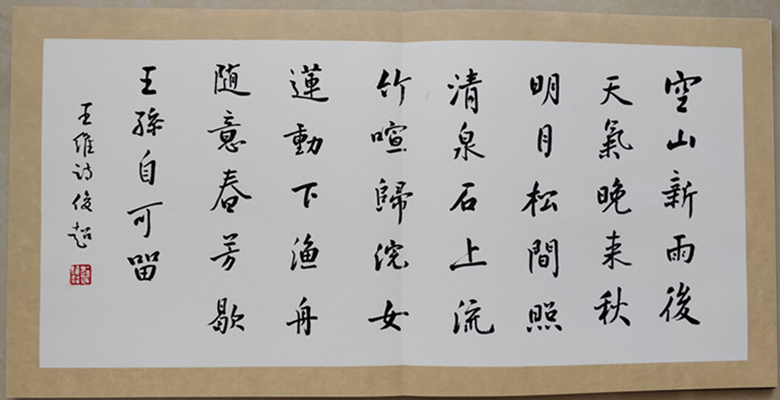 空山新雨後
天氣晚来秋
明月松間照
清泉石上流
竹喧歸浣女
蓮動下漁舟
随意春芳歇
王孫自可留
王維诗俊超